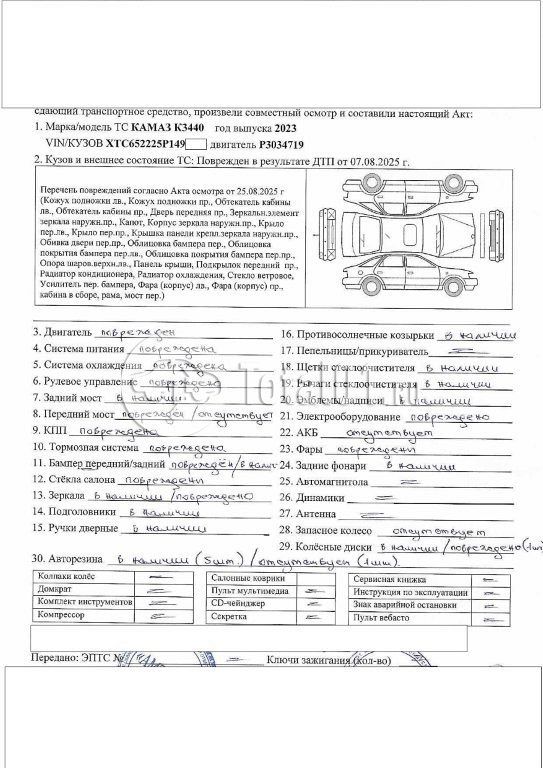 сдающий транспортное средство, произвели совместный осмотр и составили настоящий Акт:
1. Марка/модель ТС КАМАЗ К3440 год выпуска 2023
VIN/КУЗОВ XTC652225P149 двигатель P3034719
2. Кузов и внешнее состояние ТС: Поврежден в результате ДТП от 07.08.2025 г.
Перечень повреждений согласно Акта осмотра от 25.08.2025 г
(Кожух подножки лв., Кожух подножки пр., Обтекатель кабины
лв., Обтекатель кабины пр., Дверь передняя пр., Зеркальн.элемент
зеркала наружн.пр., Капот, Корпус зеркала наружн.пр., Крыло
пер.лв., Крыло пер.пр., Крышка панели крепл.зеркала наружн.пр.,
Обивка двери пер.пр., Облицовка бампера пер., Облицовка
покрытия бампера пер.лв., Облицовка покрытия бампера пер.пр.,
Опора шаров.верхн.лв., Панель крыши, Подкрылок передний пр.,
Радиатор кондиционера, Радиатор охлаждения, Стекло ветровое,
Усилитель пер. бампера, Фара (корпус) лв., Фара (корпус) пр.,
кабина в сборе, рама, мост пер.)
3. Двигатель поврежден
4. Система питания повреждена
5. Система охлаждения повреждена
6. Рулевое управление повреждено
7. Задний мост в наличии
8. Передний мост поврежден /отсутствует
9. КПП повреждена
10. Тормозная система повреждена
11. Бампер передний/задний повреждён/в налич
12. Стёкла салона повреждены
13. Зеркала в наличии /повреждено
14. Подголовники в наличии
15. Ручки дверные в наличии
16. Противосолнечные козырьки в наличии
17. Пепельницы/прикуриватель
18. Щетки стеклоочистителя в наличии
19. Рычаги стеклоочистителя в наличии
20. Эмблемы/надписи в наличии
21. Электрооборудование повреждено
22. АКБ отсутствует
23. Фары повреждены
24. Задние фонари в наличии
25. Автомагнитола
26. Динамики
27. Антенна
28. Запасное колесо отсутствует
29. Колёсные диски в наличии /повреждено (1шт)
30. Авторезина в наличии (5шт) / отсутствует (1шт)
Колпаки колёс
Домкрат
Комплект инструментов
Компрессор
Салонные коврики
Пульт мультимедиа
CD-чейнджер
Секретка
Сервисная книжка
Инструкция по эксплуатации
Знак аварийной остановки
Пульт вебасто
Передано: ЭПТС № Ключи зажигания (кол-во)